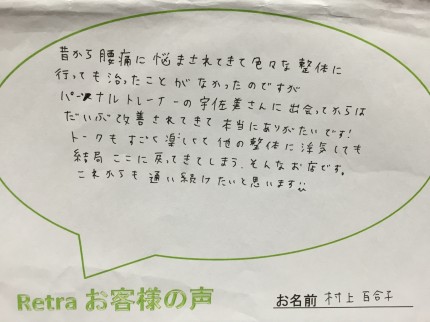 昔から腰痛に悩まされてきて色々な整体に
行っても治ったことがなかったのですが
パーソナルトレーナーの宇佐美さんに出会ってからは
だいぶ改善されてきて本当にありがたいです!
トークもすごく楽しくて他の整体に浮気しても
結局ここに戻ってきてしまう、そんなお店です。
これからも通い続けたいと思います!!
Retra お客様の声
お名前 村上百合子